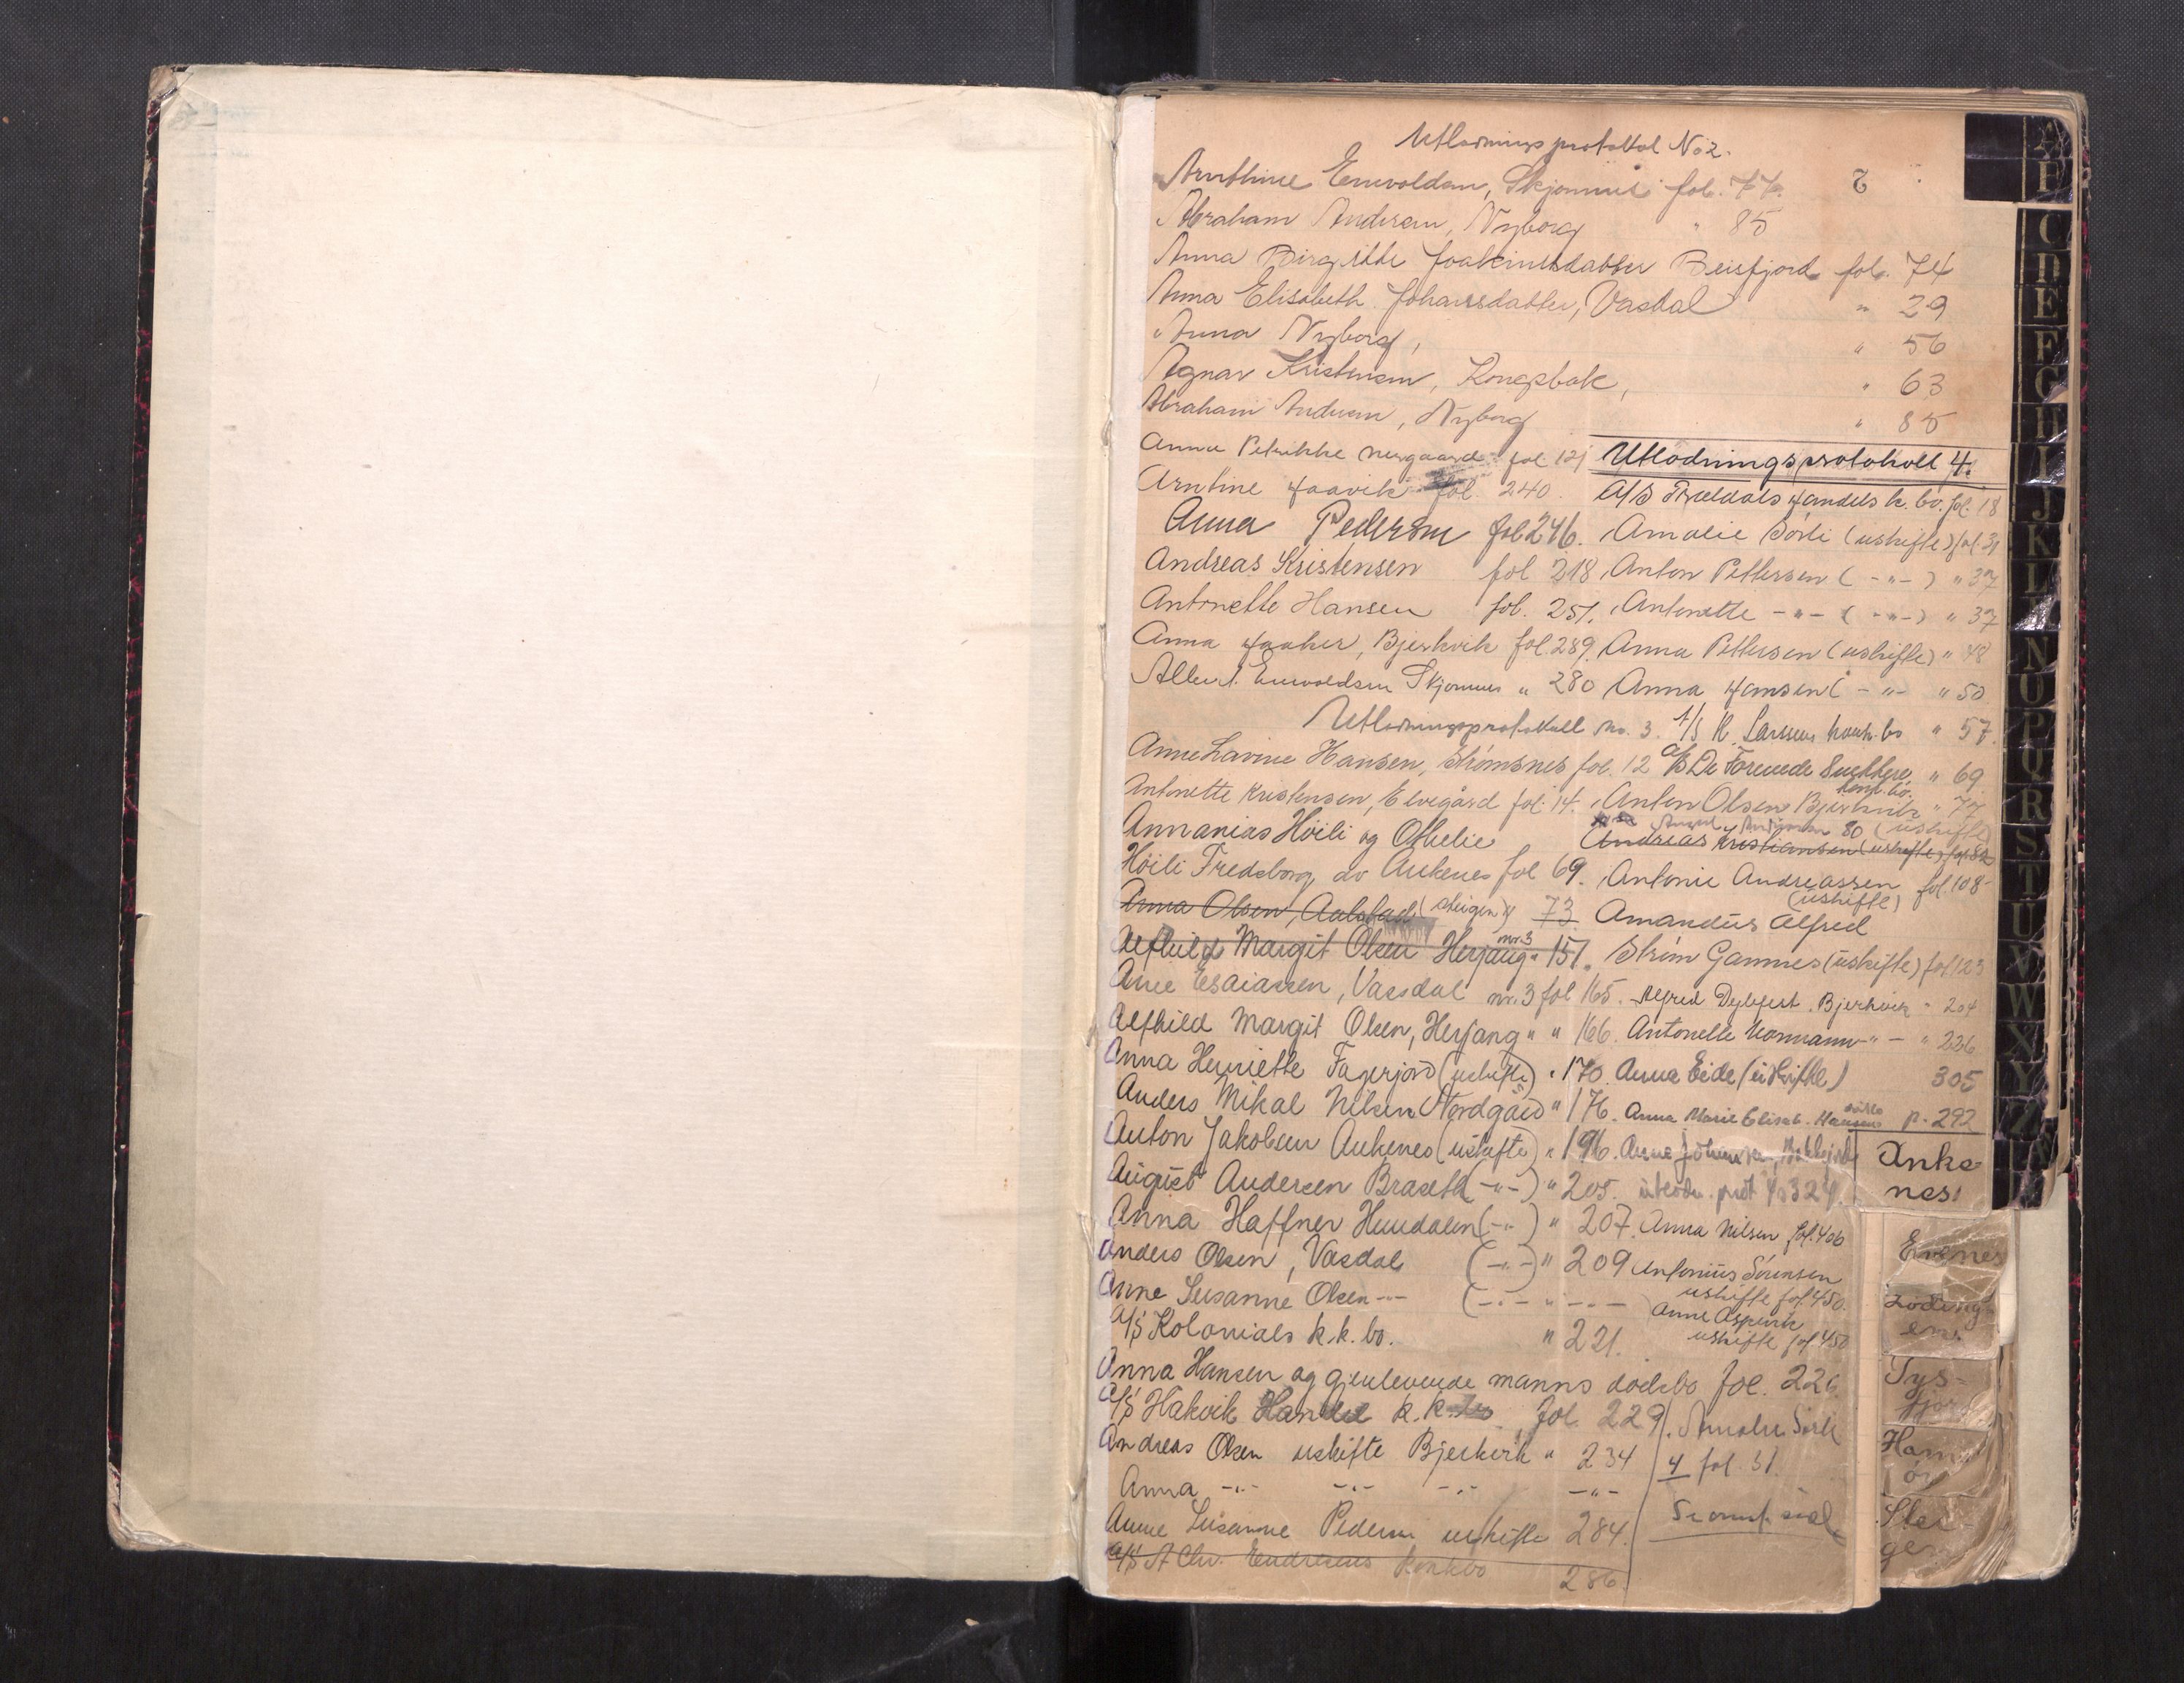 Utlodningsprotokol No 2.
Arnthine Enevoldsen, Skjommen fol. 77.
Abraham Andersen, Nyborg " 85
Anna Birgitte Joakimsdatter Beisfjord fol. 74
Anna Elisabeth Johansdatter, Vasdal " 29
Anna Nyborg, " 56
Agnar Kristensen, Kongsbak, " 63
Abraham Andersen, Nyborg " 85
Anna Petrikke Nergaard fol 121
Arntine Haavik fol. 240.
Anna Pedersen fol 246.
Andreas Kristensen fol 218
Antonette Hansen fol. 251.
Anna Haaker, Bjerkvik fol. 289.
Enevoldsen Skjommen " 280
Utlodningsprotokoll no. 3.
Anne Lavine Hansen, Strømsnes fol. 12
Antonette Kristensen, Elvegård fol. 14.
Annanias Høili og Othelie
Høili Fredsborg av Ankenes fol 69.
Anna Olsen, Aalstad (Steigen) " 73
Alfhild Margit Olsen Herjang nr. 3 " 151.
Ane Esaiassen, Vassdal nr. 3 fol 165.
Alfhild Margit Olsen, Herjang " " 166
Anna Henriette Fagerjord (uskifte) " 170.
Anders Mikal Nilsen Nordgård " 176.
Anton Jakobsen Ankenes (uskifte) " 196.
August Andersen Braseth (-"-) " 205.
Anna Haffner Hundalen (-"-) " 207.
Anders Olsen, Vasdal (-"-) " 209
Anne Susanne Olsen -"- (-"- " -"-
A/S Kolonials k.k. bo. " 221.
Anna Hansen og gjenlevende manns dødsbo fol. 226.
A/S Hakvik Handel k.k. bo fol. 229.
Andreas Olsen uskifte Bjerkvik " 234
Anna -"- -"- -"- -"-
Anne Susanne Pedersen uskifte 284.
A/S A Chr. Endresens konkbo 286.
Utlodningsprotokoll 4.
A/S Trældals Handels k. bo. fol. 18
Amalie Sørli (uskifte) fol. 31
Anton Pettersen (-"-) " 37
Antonette -"- (-"-) " 37
Anna Pettersen (uskifte) " 48
Anna Hansen (-"- " 50
A/S K. Larssens konk. bo " 57.
A/S De Forenede Snekkere konk. bo. " 69
Anton Olsen Bjerkvik " 77
80 (uskifte)
Andreas Kristiansen (uskifte) fol 82
Antonie Andreassen fol. 108-
(uskifte)
Amandus Alfred
Strøm Gamnes (uskifte) fol 123
Alfred Dybfest. Bjerkvik " 204
Antonette Normann -"- " 226
Anna Eide (uskifte) 305
Anna Marie Elisab. Hansens p. 292
Anna Johansen,
utlodn. prot 4 s 324.
Anna Nilsen fol. 406
Antonius Sørensen
uskifte fol. 450.
Anne Aspevik
uskifte fol 450
Amalie Sørli
4 fol. 31.
Ankenes
Evenes
Lødingen
Tysfjord
Hamarøy
Steigen
A
B
C
D
E
F
G
H
I
J
K
L
N
O
P
Q
R
S
T
U
V
W
X
Y
Z